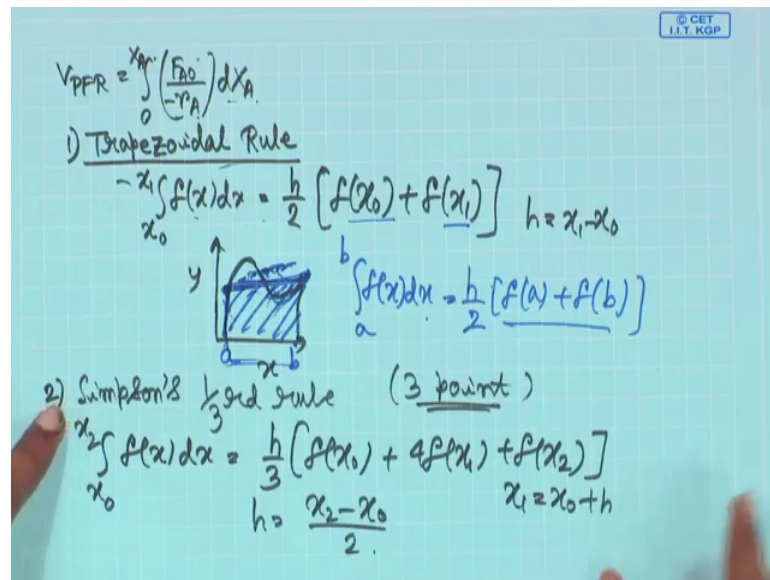 © CET
I.I.T. KGP
V_PFR = ∫_0^{X_Af} (F_A0 / -r_A) dX_A
1) Trapezoidal Rule
∫_{x_0}^{x_1} f(x)dx = h/2 [f(x_0) + f(x_1)] h = x_1 - x_0
y
∫_a^b f(x)dx = h/2 [f(a) + f(b)]
a b
x
2) Simpson's 1/3 rd rule (3 point)
∫_{x_0}^{x_2} f(x)dx = h/3 [f(x_0) + 4f(x_1) + f(x_2)]
h = (x_2 - x_0)/2. x_1 = x_0 + h